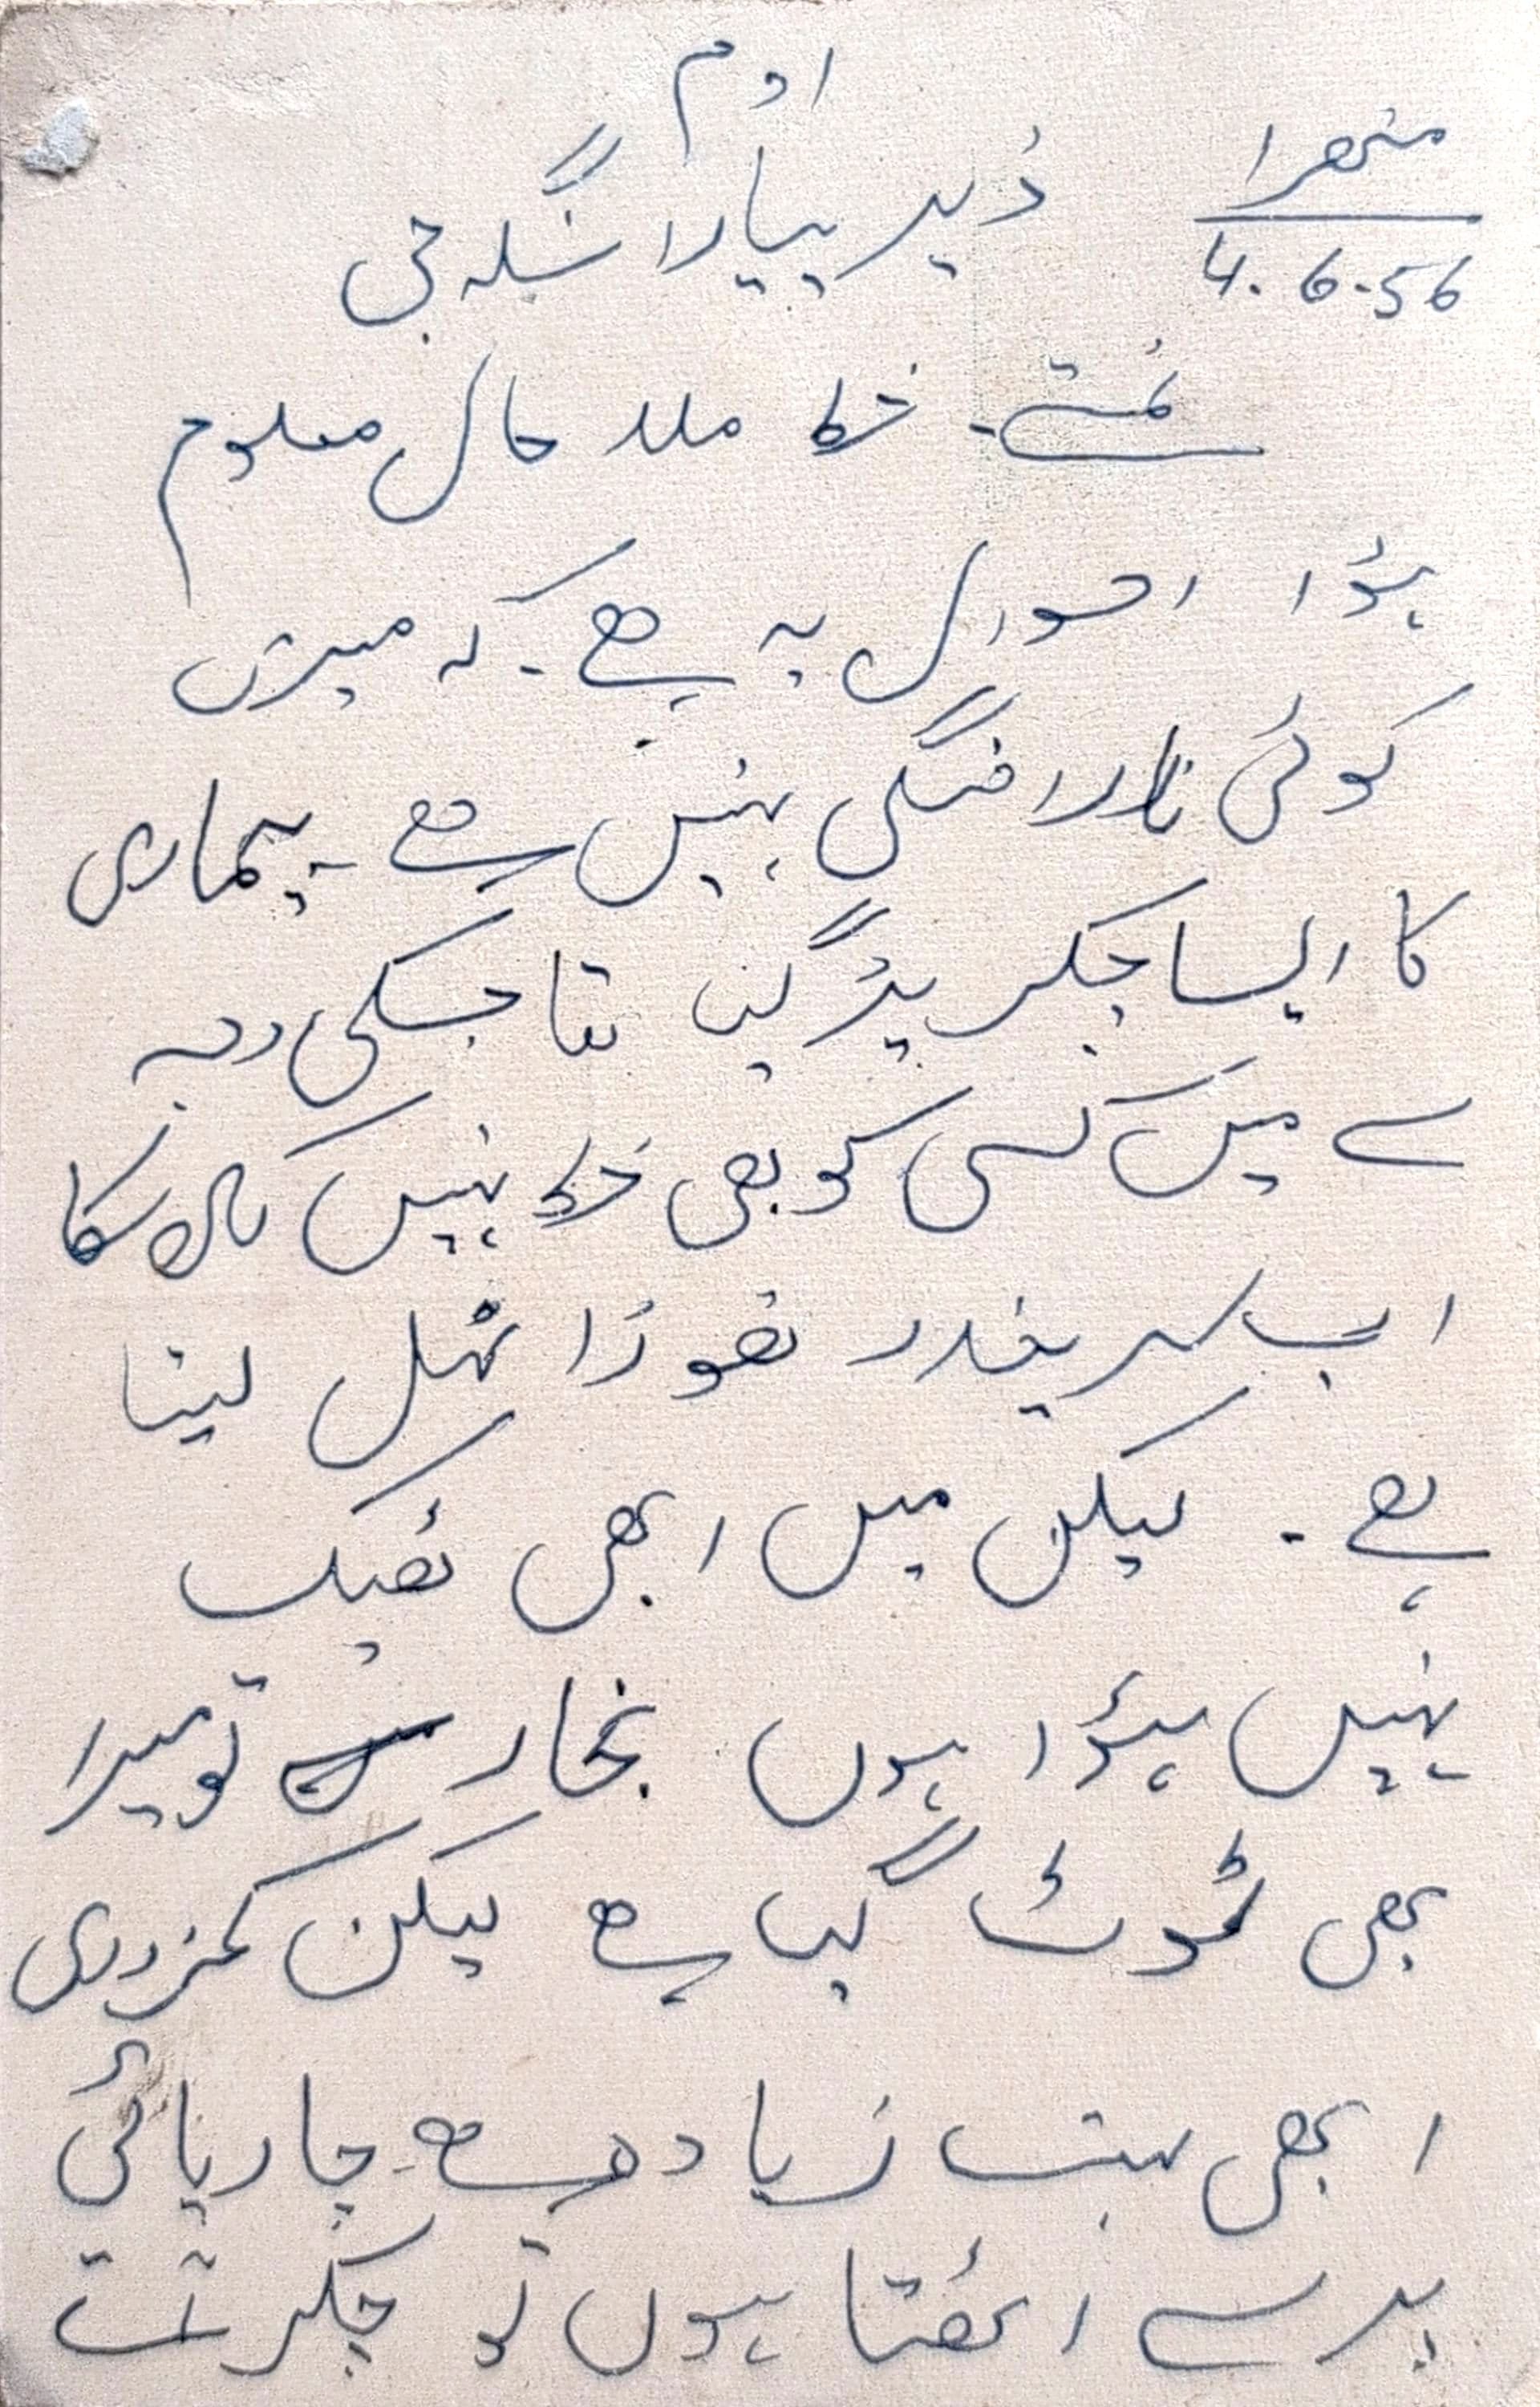 اوم
متھرا
4.6.56
ڈیر پیارا سنگھ جی
نمستے۔ خط ملا حال معلوم
ہؤا احوال یہ ہے۔ کہ میری
کوئی ناراضگی نہیں ہے۔ بیماری
کا ایسا چکر پڑ گیا تھا جسکی وجہ
سے میں کسی کو بھی خط نہیں لکھ سکا
اب سریندر تھوڑا ٹہل لیتا
ہے۔ لیکن میں ابھی ٹھیک
نہیں ہؤا ہوں بخار تو میرا
بھی ٹوٹ گیا ہے لیکن کمزوری
ابھی بہت زیادہ ہے۔ چارپائی
پر سے اٹھتا ہوں تو چکر